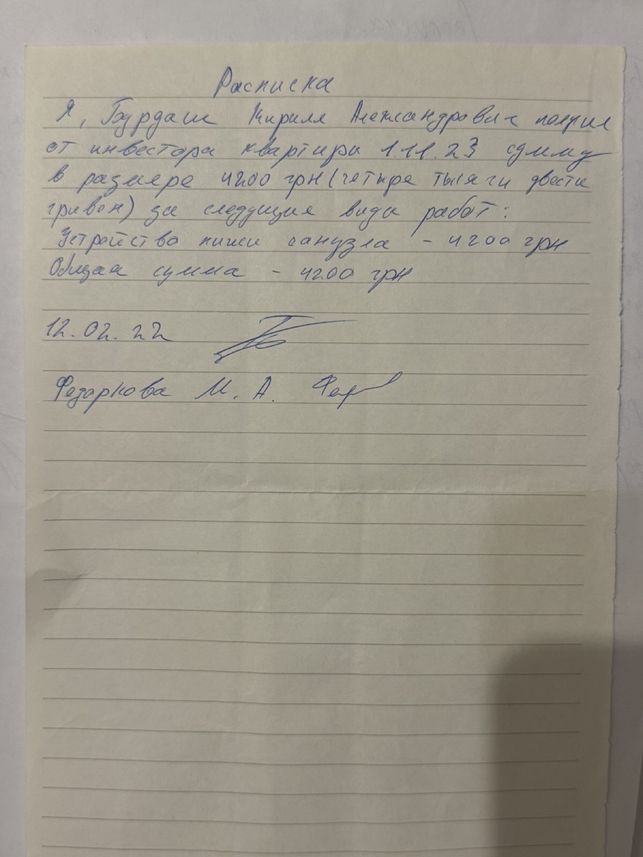 Расписка
Я, Бурдаш Кирилл Александрович получил
от инвестора квартиры 1.11.23 сумму
в размере 4200 грн (четыре тысячи двести
гривен) за следущие виды работ:
Устройство ниши санузла - 4200 грн
Общая сумма - 4200 грн
12.02.22
М. А.